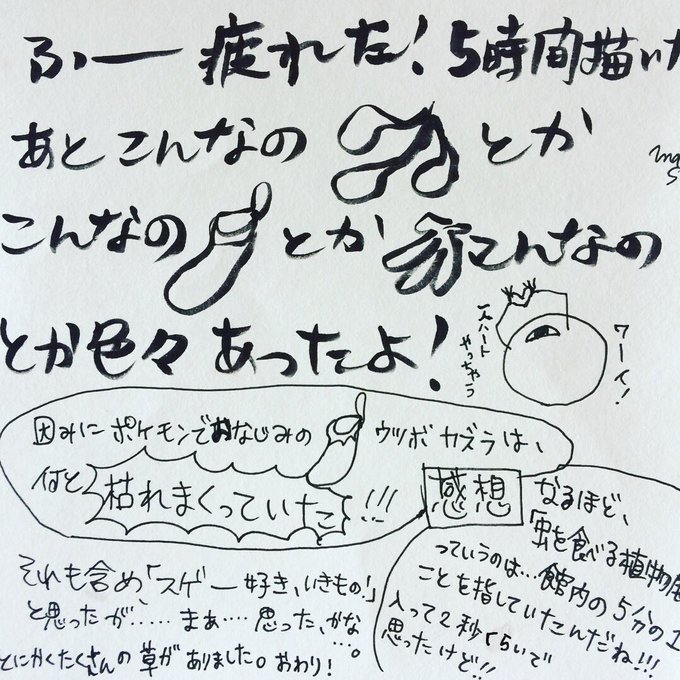 ふー疲れた!5時間描いた
あとこんなの とか
こんなの とか こんなの
とか色々あったよ!
ワーイ!
一人ハート
やっちゃう
因みにポケモンでおなじみの ウツボカズラは、
何と 枯れまくっていた!!!
感想
なるほど、
「虫を食べる植物展
っていうのは…館内の5分の1
ことを指していたんだね!!!
入って2秒くらいで
思ったけど!!
それも含め「スゲー好き、いきもの!」
と思ったが、…… まぁ…. 思った、かな
…。
とにかくたくさんの草がありました。おわり!